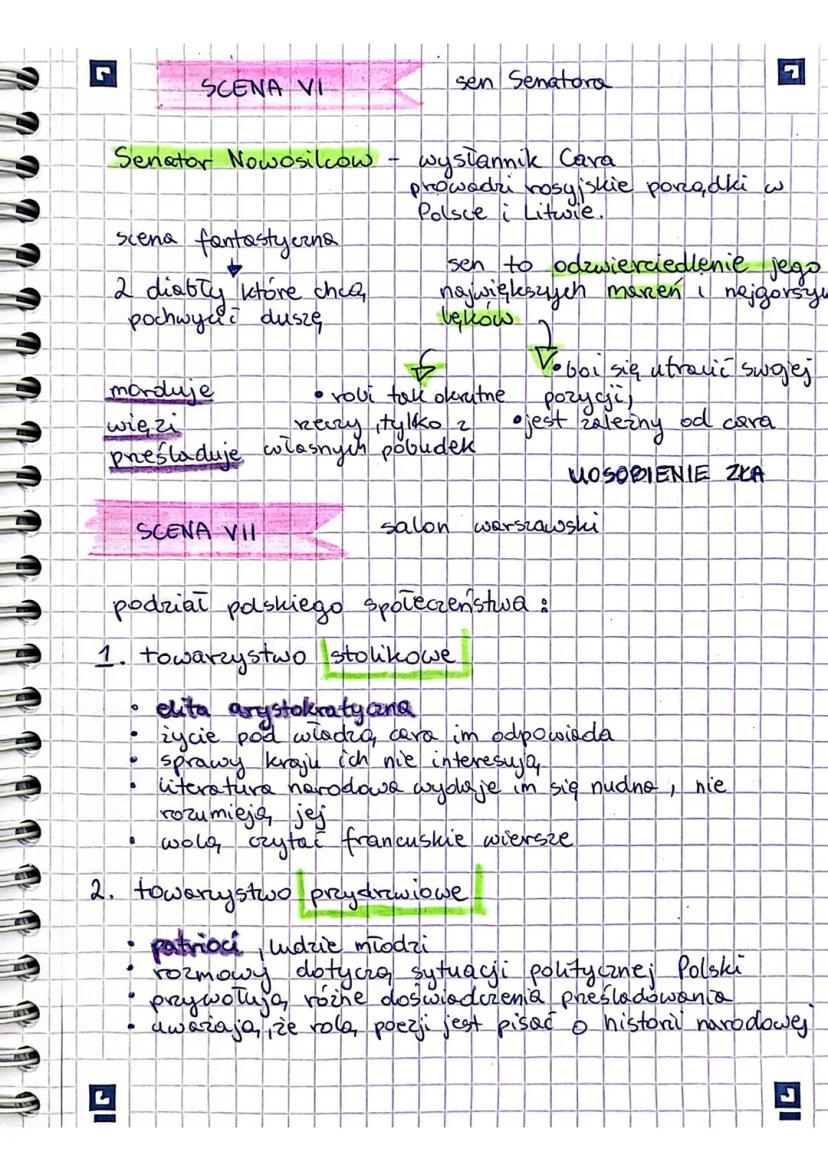 SCENA VI
sen Senatora
Senator Nowosilcow - wysłannik Cara
prowadzi rosyjskie porządki w
Polsce i Litwie.
scena fantastyczna
2 diabły które chcą
pochwycić duszę
sen to odzwierciedlenie jego
największych marzeń i najgorszy
lęków
morduje
więzi
prześladuje
• robi tak okrutne
rzeczy, tylko z
własnych pobudek
• boi się utracić swojej
pozycji,
• jest zależny od cara
UOSOBIENIE ZŁA
SCENA VII
salon warszawski
podział polskiego społeczeństwa:
1. towarzystwo stolikowe
• elita arystokratyczna
• życie pod władzą cara im odpowiada
• sprawy kraju ich nie interesują
• literatura narodowa wydaje im się nudna, nie
rozumieją jej
• wolą czytać francuskie wiersze
2. towarzystwo przydrzwiowe
• patrioci, ludzie młodzi
• rozmowy dotyczą sytuacji politycznej Polski
• przywołują różne doświadczenia prześladowania
• uważają, że rolą poezji jest pisać o historii narodowej